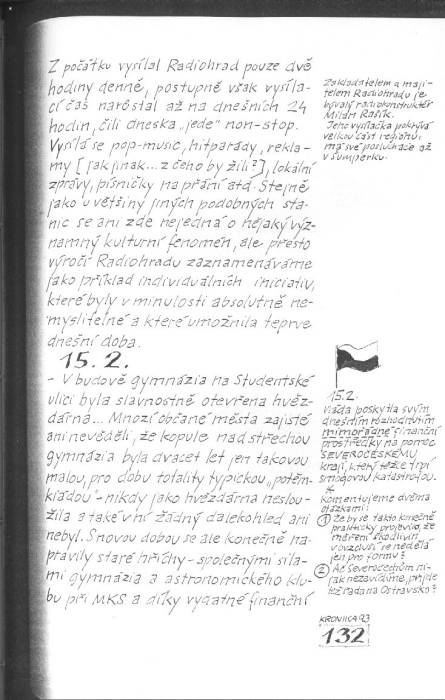 Z počátku vysílal Radiohrad pouze dvě
hodiny denně, postupně však vysíla-
cí čas narostal až na dnešních 24
hodin, čili dneska „jede" non-stop.
Vysílá se pop-music, hitparády, rekla-
my [jak jinak... z čeho by žili?], lokální
zprávy, písničky na přání atd. Stejně
jako u většiny jiných podobných sta-
nic se ani zde nejedná o nějaký výz-
namný kulturní fenomén, ale přesto
výročí Radiohradu zaznamenáváme
jako příklad individuálních iniciativ,
které byly v minulosti absolutně ne-
myslitelné a které umožnila teprve
dnešní doba.
15.2.
- V budově gymnázia na Studentské
ulici byla slavnostně otevřena hvěz-
dárna... Mnozí občané města zajisté
ani nevěděli, že kopule nad střechou
gymnázia byla dvacet let jen takovou
malou, pro dobu totality typickou „potěm-
kiádou" - nikdy jako hvězdárnaneslou-
žila a také v ní žádný dalekohled ani
nebyl. S novou dobou se ale konečně na-
pravily staré hříchy - společnými sila-
mi gymnázia a astronomického klu-
bu při MKS a díky vydatné finanční
Zakladatelem a maji-
telem Radiohradu je
bývalý radiokonstruktér
Milan Rašík.
Jeho vysílačka pokrývá
velkou část regionu,
má své posluchače až
v Šumperku.
15.2.
Vláda poskytla svým
dnešním rozhodnutím
mimořádné finanční
prostředky na pomoc
SEVEROČESKÉMU
kraji, který těžce trpí
smogovou katastrofou.
*
Komentujeme dvěma
otázkami:
1 Že by se takto konečně
prakticky projevilo, že
měření škodlivin
v ovzduší se nedělá
jen pro formu?
2 Ač Severočechům ni-
jak nezávidíme, přijde
též řada na Ostravsko?
KRONIKA 93
132